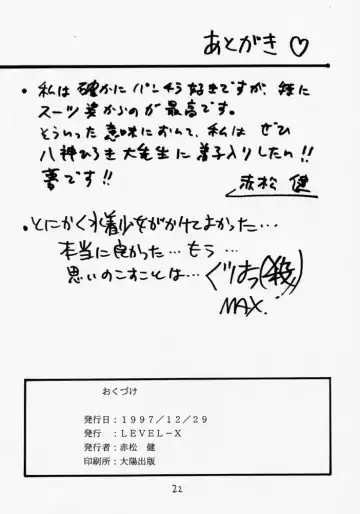 あとがき♡
・私は確かにパンチラ好きですが、特に
スーツ姿からのが最高です。
そういった意味において、私はぜひ
八神ひろき大先生に弟子入りしたい!!
夢です!!
赤松 健
・とにかく水着少女がかけてよかった…
本当に良かった…もう…
思いのこすことは…ぐはっ(殺)
MAX.
おくづけ
発行日:1997/12/29
発行 :LEVEL-X
発行者:赤松 健
印刷所:大陽出版
22